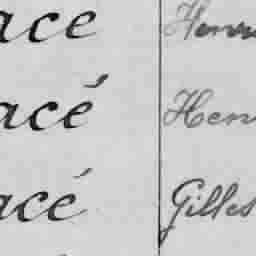 ace Henri
acé Hen
acé Gilles